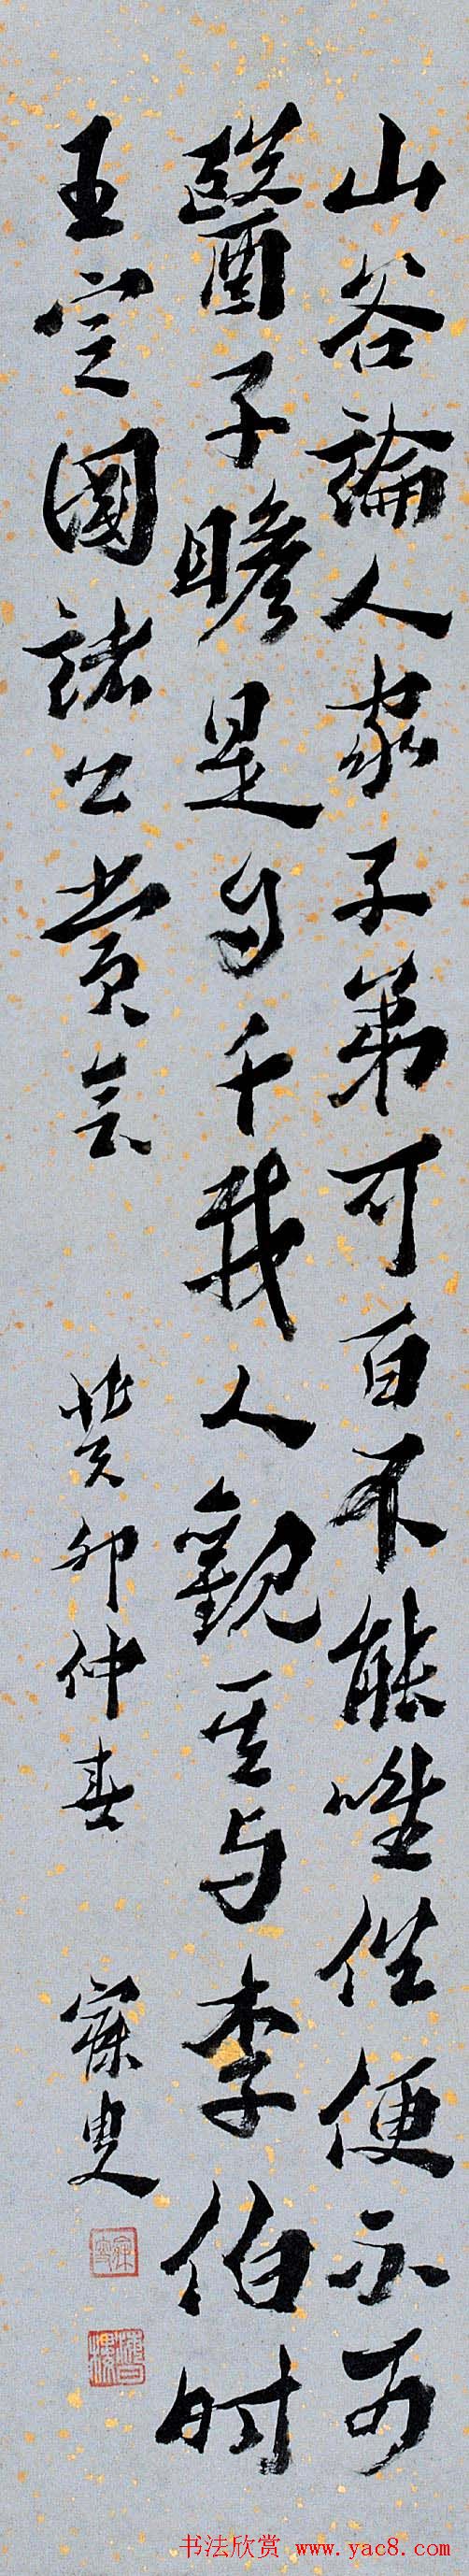 山谷論人家子弟可百不能唯俗便不可
醫子瞻是為千載人觀其与李伯时
王定國諸公賞会
癸卯仲春
寐叟
书法欣赏 www.yac8.com